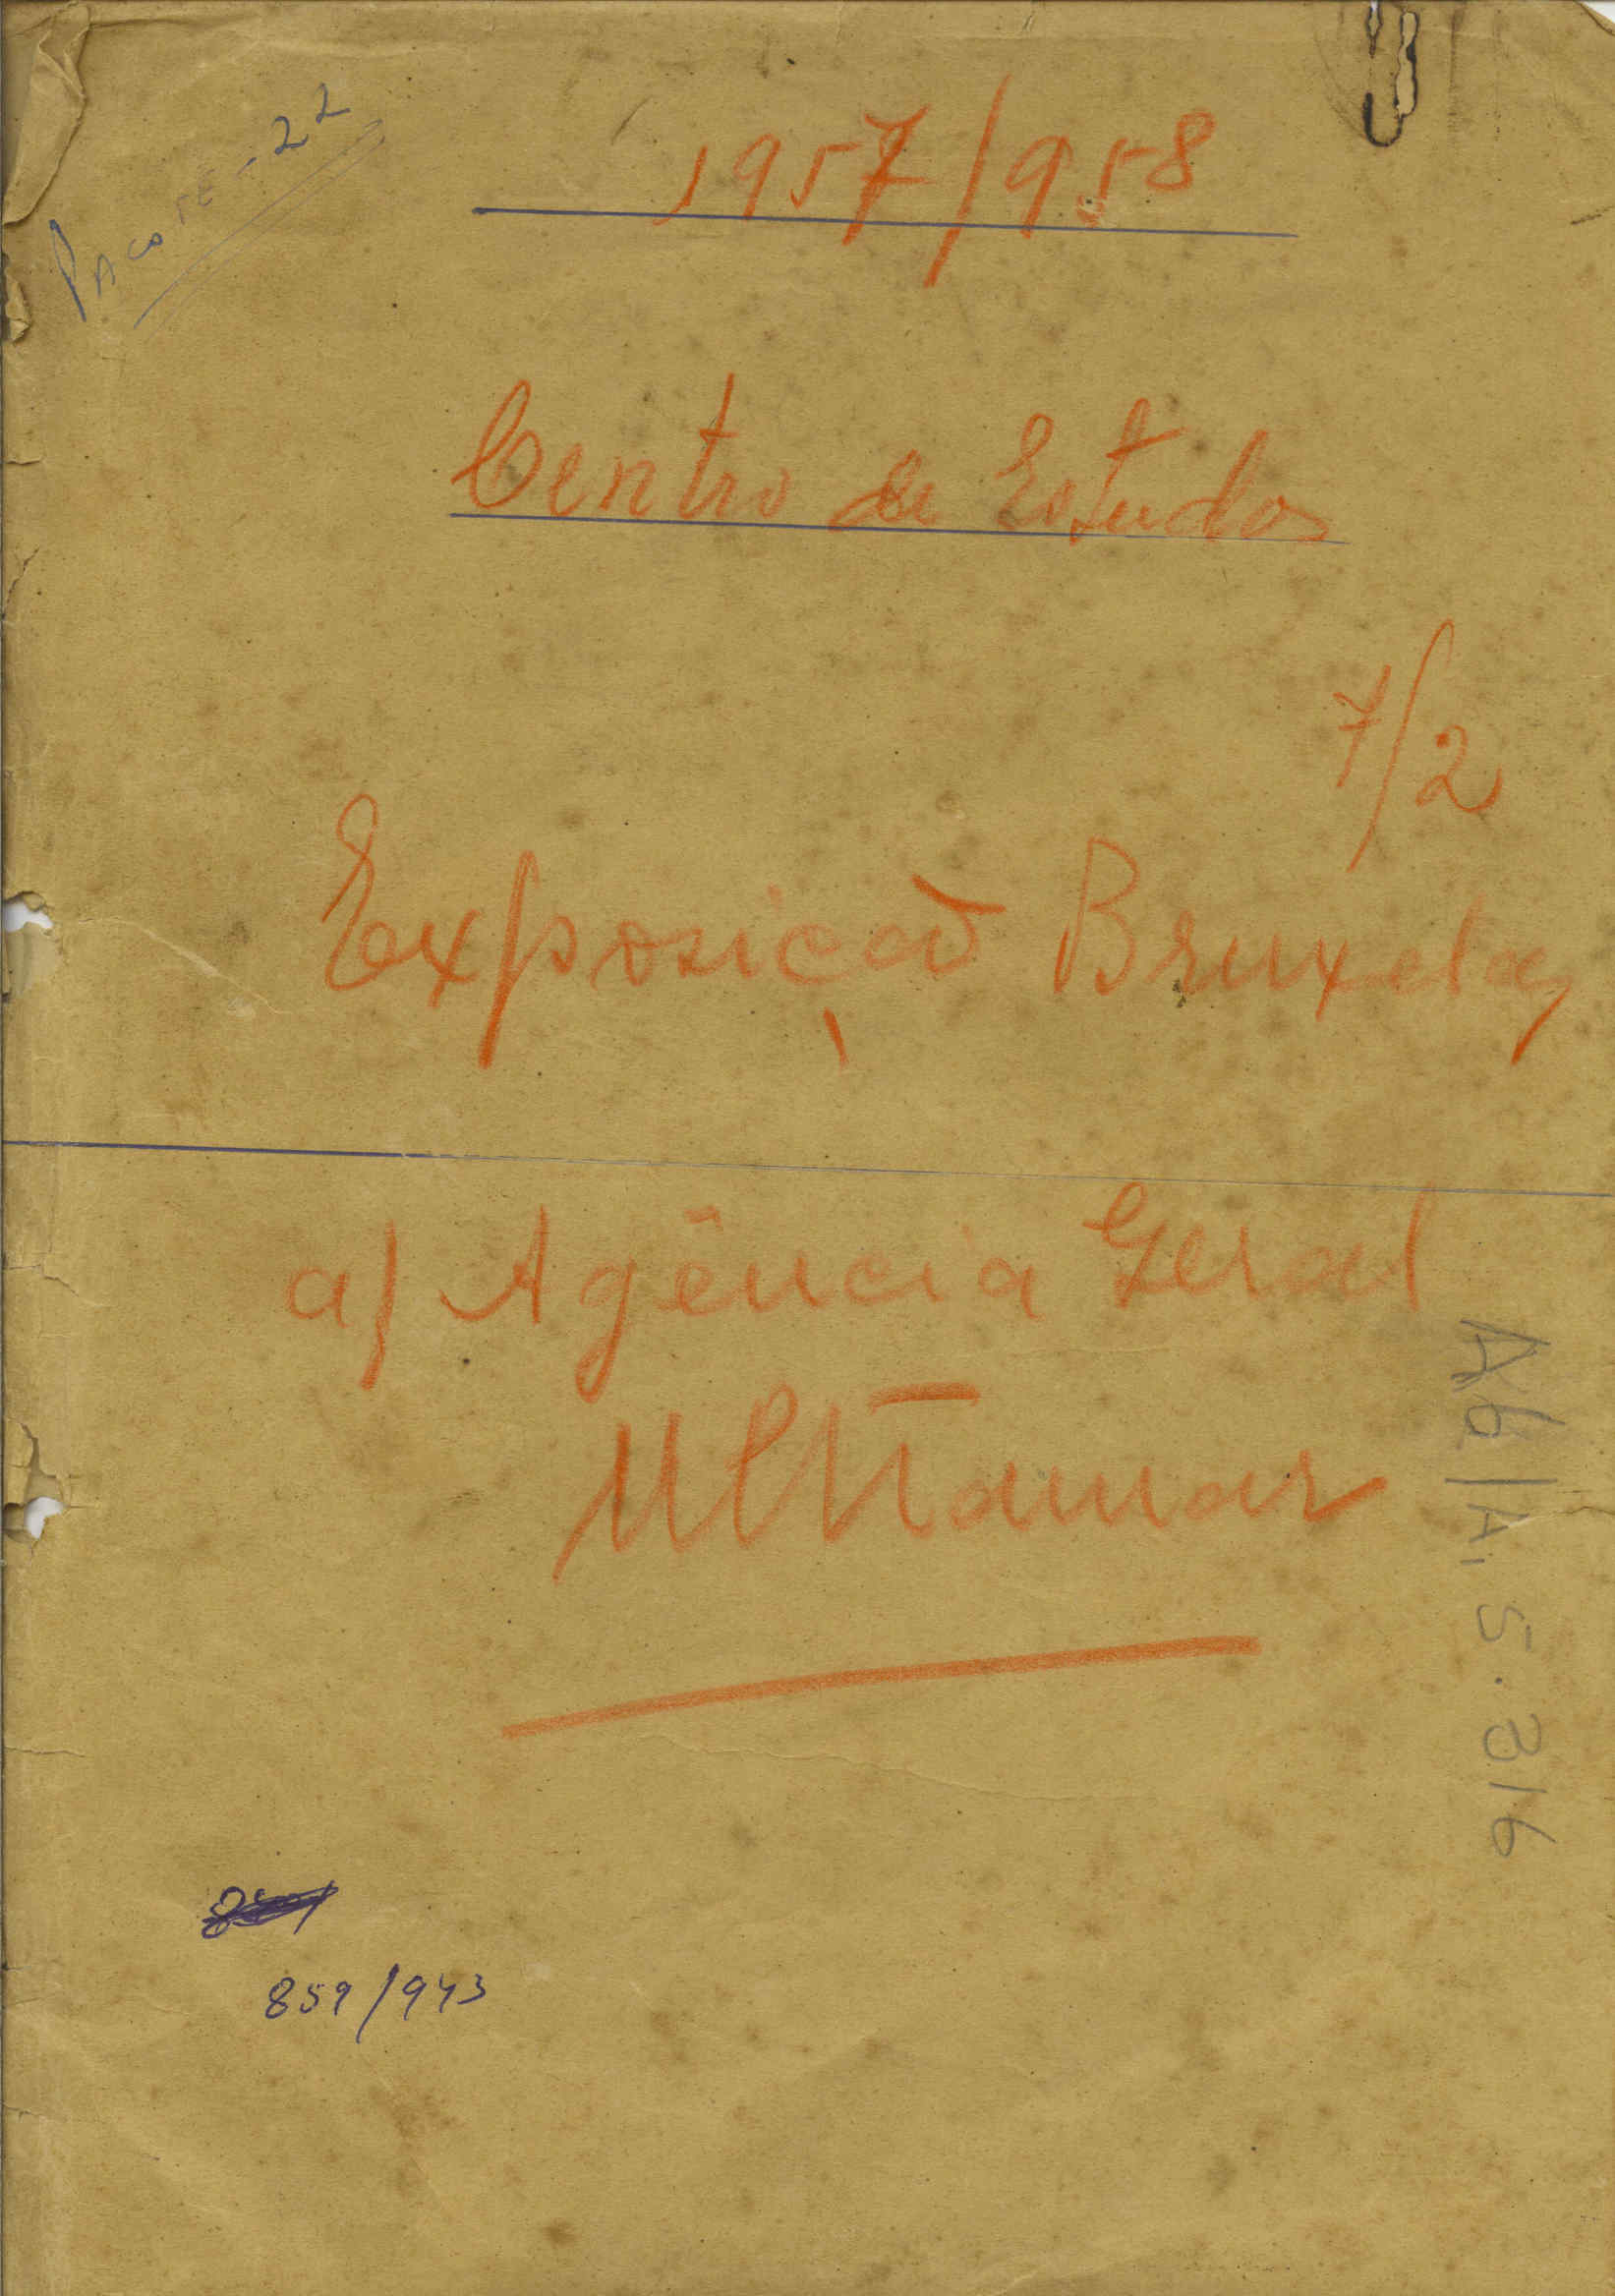 PACOTE-22
1957/958
Centro de Estudos
7/2
Exposição Bruxelas
a) Agência Geral
Ultramar
Ab|A. 5.316
859/943